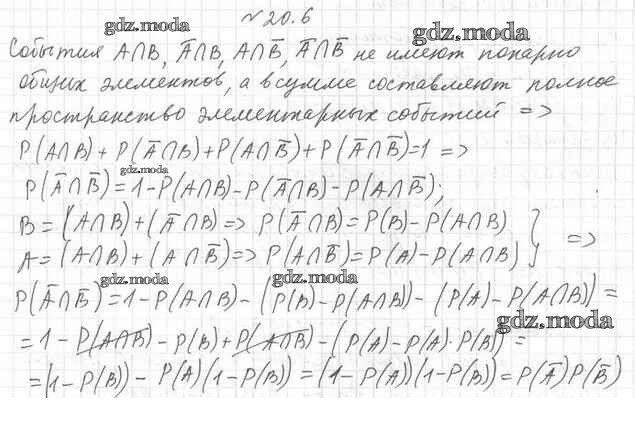 №20.6
gdz.moda
gdz.moda
События A∩B, A̅∩B, A∩B̅, A̅∩B̅ не имеют попарно
общих элементов, а в сумме составляют полное
пространство элементарных событий =>
P(A∩B)+P(A̅∩B)+P(A∩B̅)+P(A̅∩B̅)=1 =>
gdz.moda
P(A̅∩B̅)=1-P(A∩B)-P(A̅∩B)-P(A∩B̅);
B=(A∩B)+(A̅∩B)=> P(A̅∩B)=P(B)-P(A∩B) }
A=(A∩B)+(A∩B̅)=> P(A∩B̅)=P(A)-P(A∩B) } =>
gdz.moda
gdz.moda
P(A̅∩B̅)=1-P(A∩B)-(P(B)-P(A∩B))-(P(A)-P(A∩B))=
gdz.moda
=1-P(A∩B)-P(B)+P(A∩B)-(P(A)-P(A)·P(B))=
=(1-P(B))-P(A)(1-P(B))=(1-P(A))(1-P(B))=P(A̅)P(B̅)